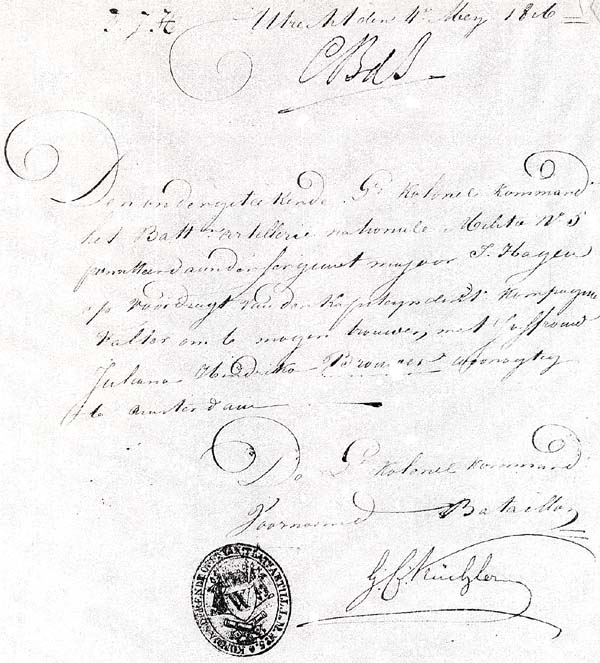 Utrecht den 4e Mey 1816
Den ondergetekende Lt Kolonel Kommandt
het Batt. artillerie nationale Militie No 5
permitteerd aan den Sergeant majoor J. Hagen
op voordragt van den Kapiteyn der Kompagnie
Falter om te mogen trouwen, met Juffrouw
Juliana Hendrika Brouwer woonagtig
te Amsterdam
De Lt Kolonel Kommandt
Voornoemd Bataillon
Küchler